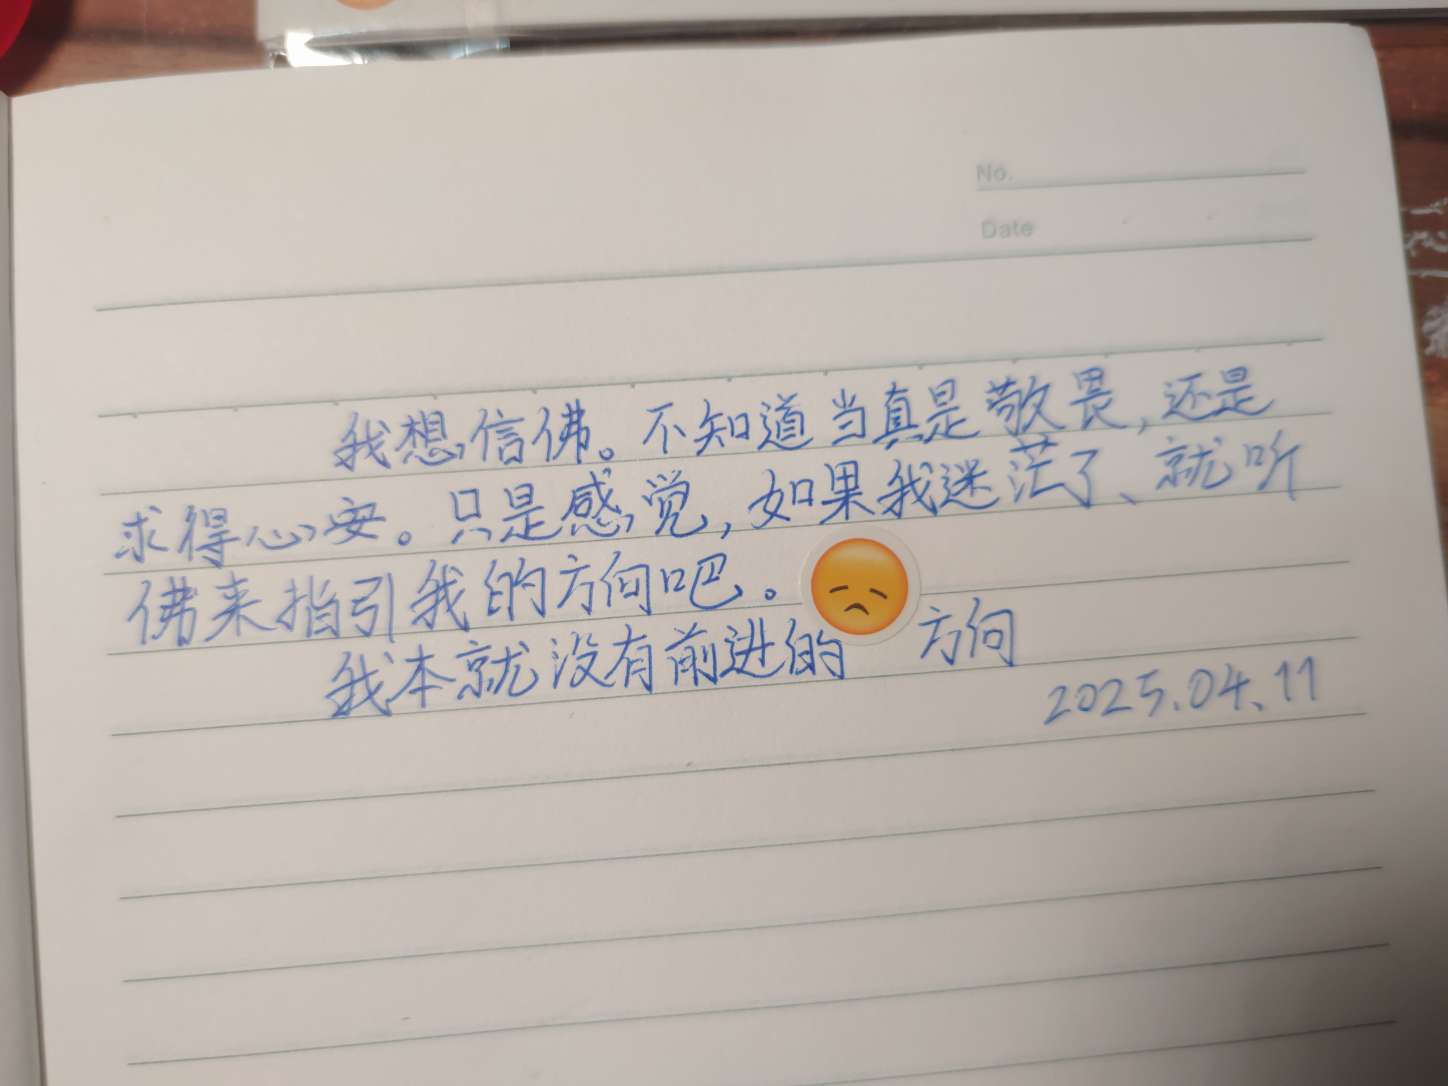 No.
Date
我想信佛。不知道当真是敬畏,还是
求得心安。只是感觉,如果我迷茫了、就听
佛来指引我的方向吧。
我本就没有前进的 方向
2025.04.11